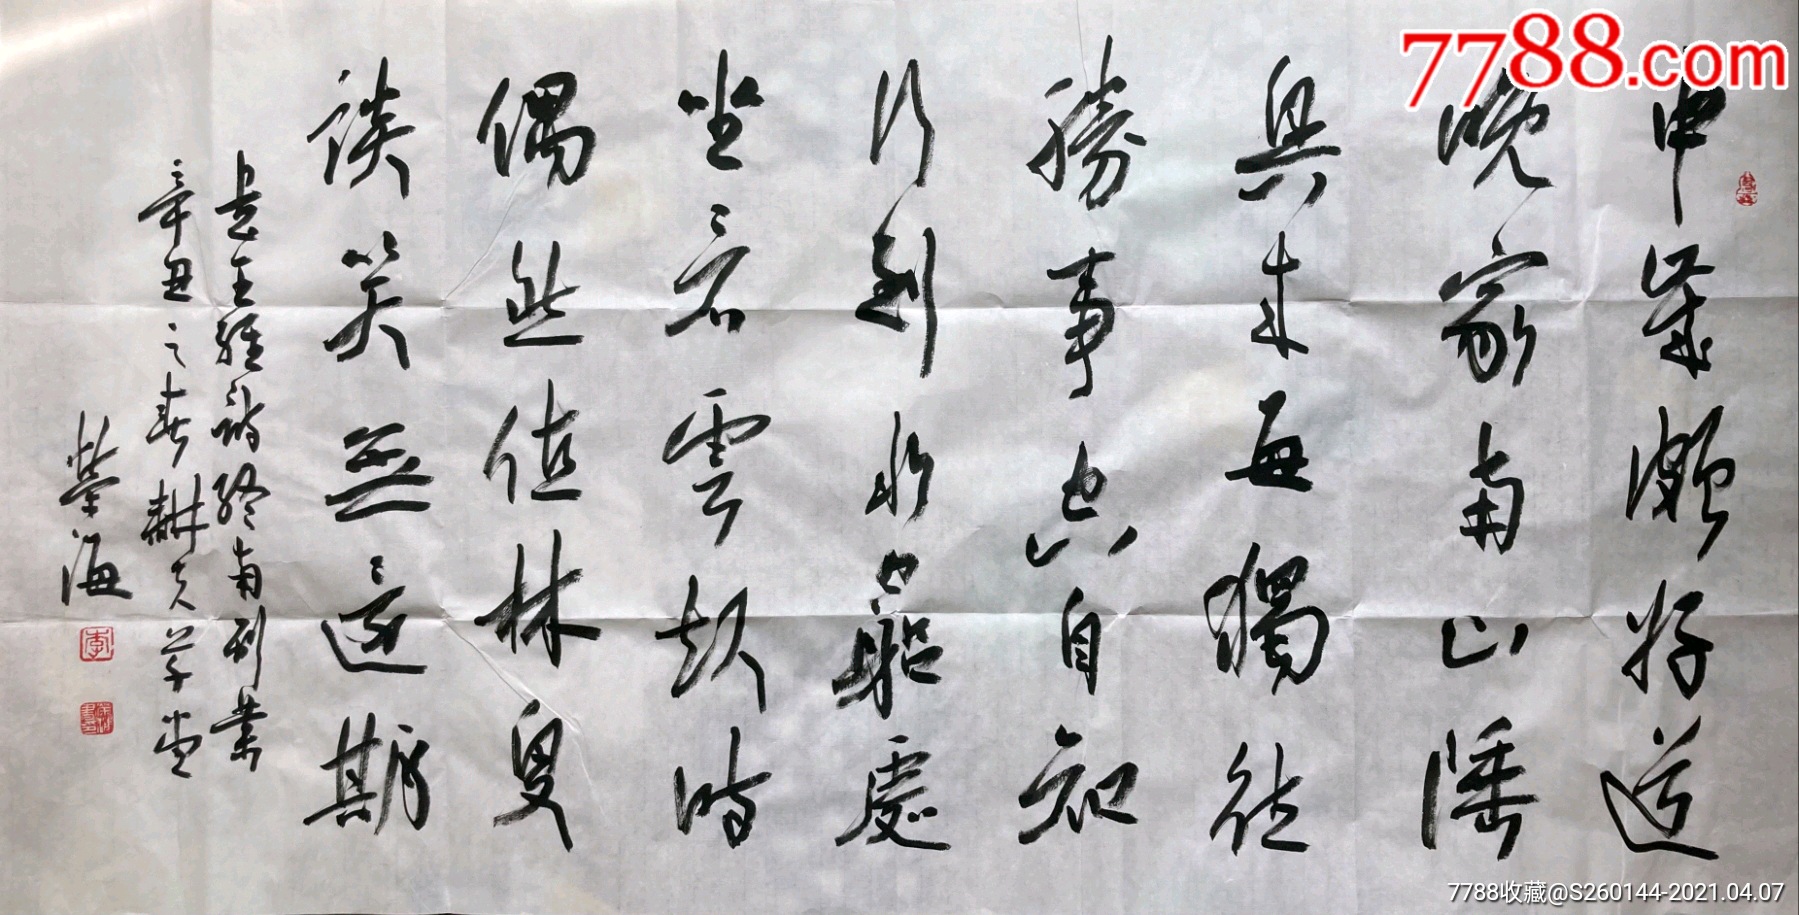 中歲頗好道
晚家南山陲
興來每獨往
勝事空自知
行到水窮處
坐看雲起時
偶然值林叟
談笑無還期
王維詩終南別業
辛丑之春耕夫草堂
榮海
李
7788.com
7788收藏@S260144-2021.04.07